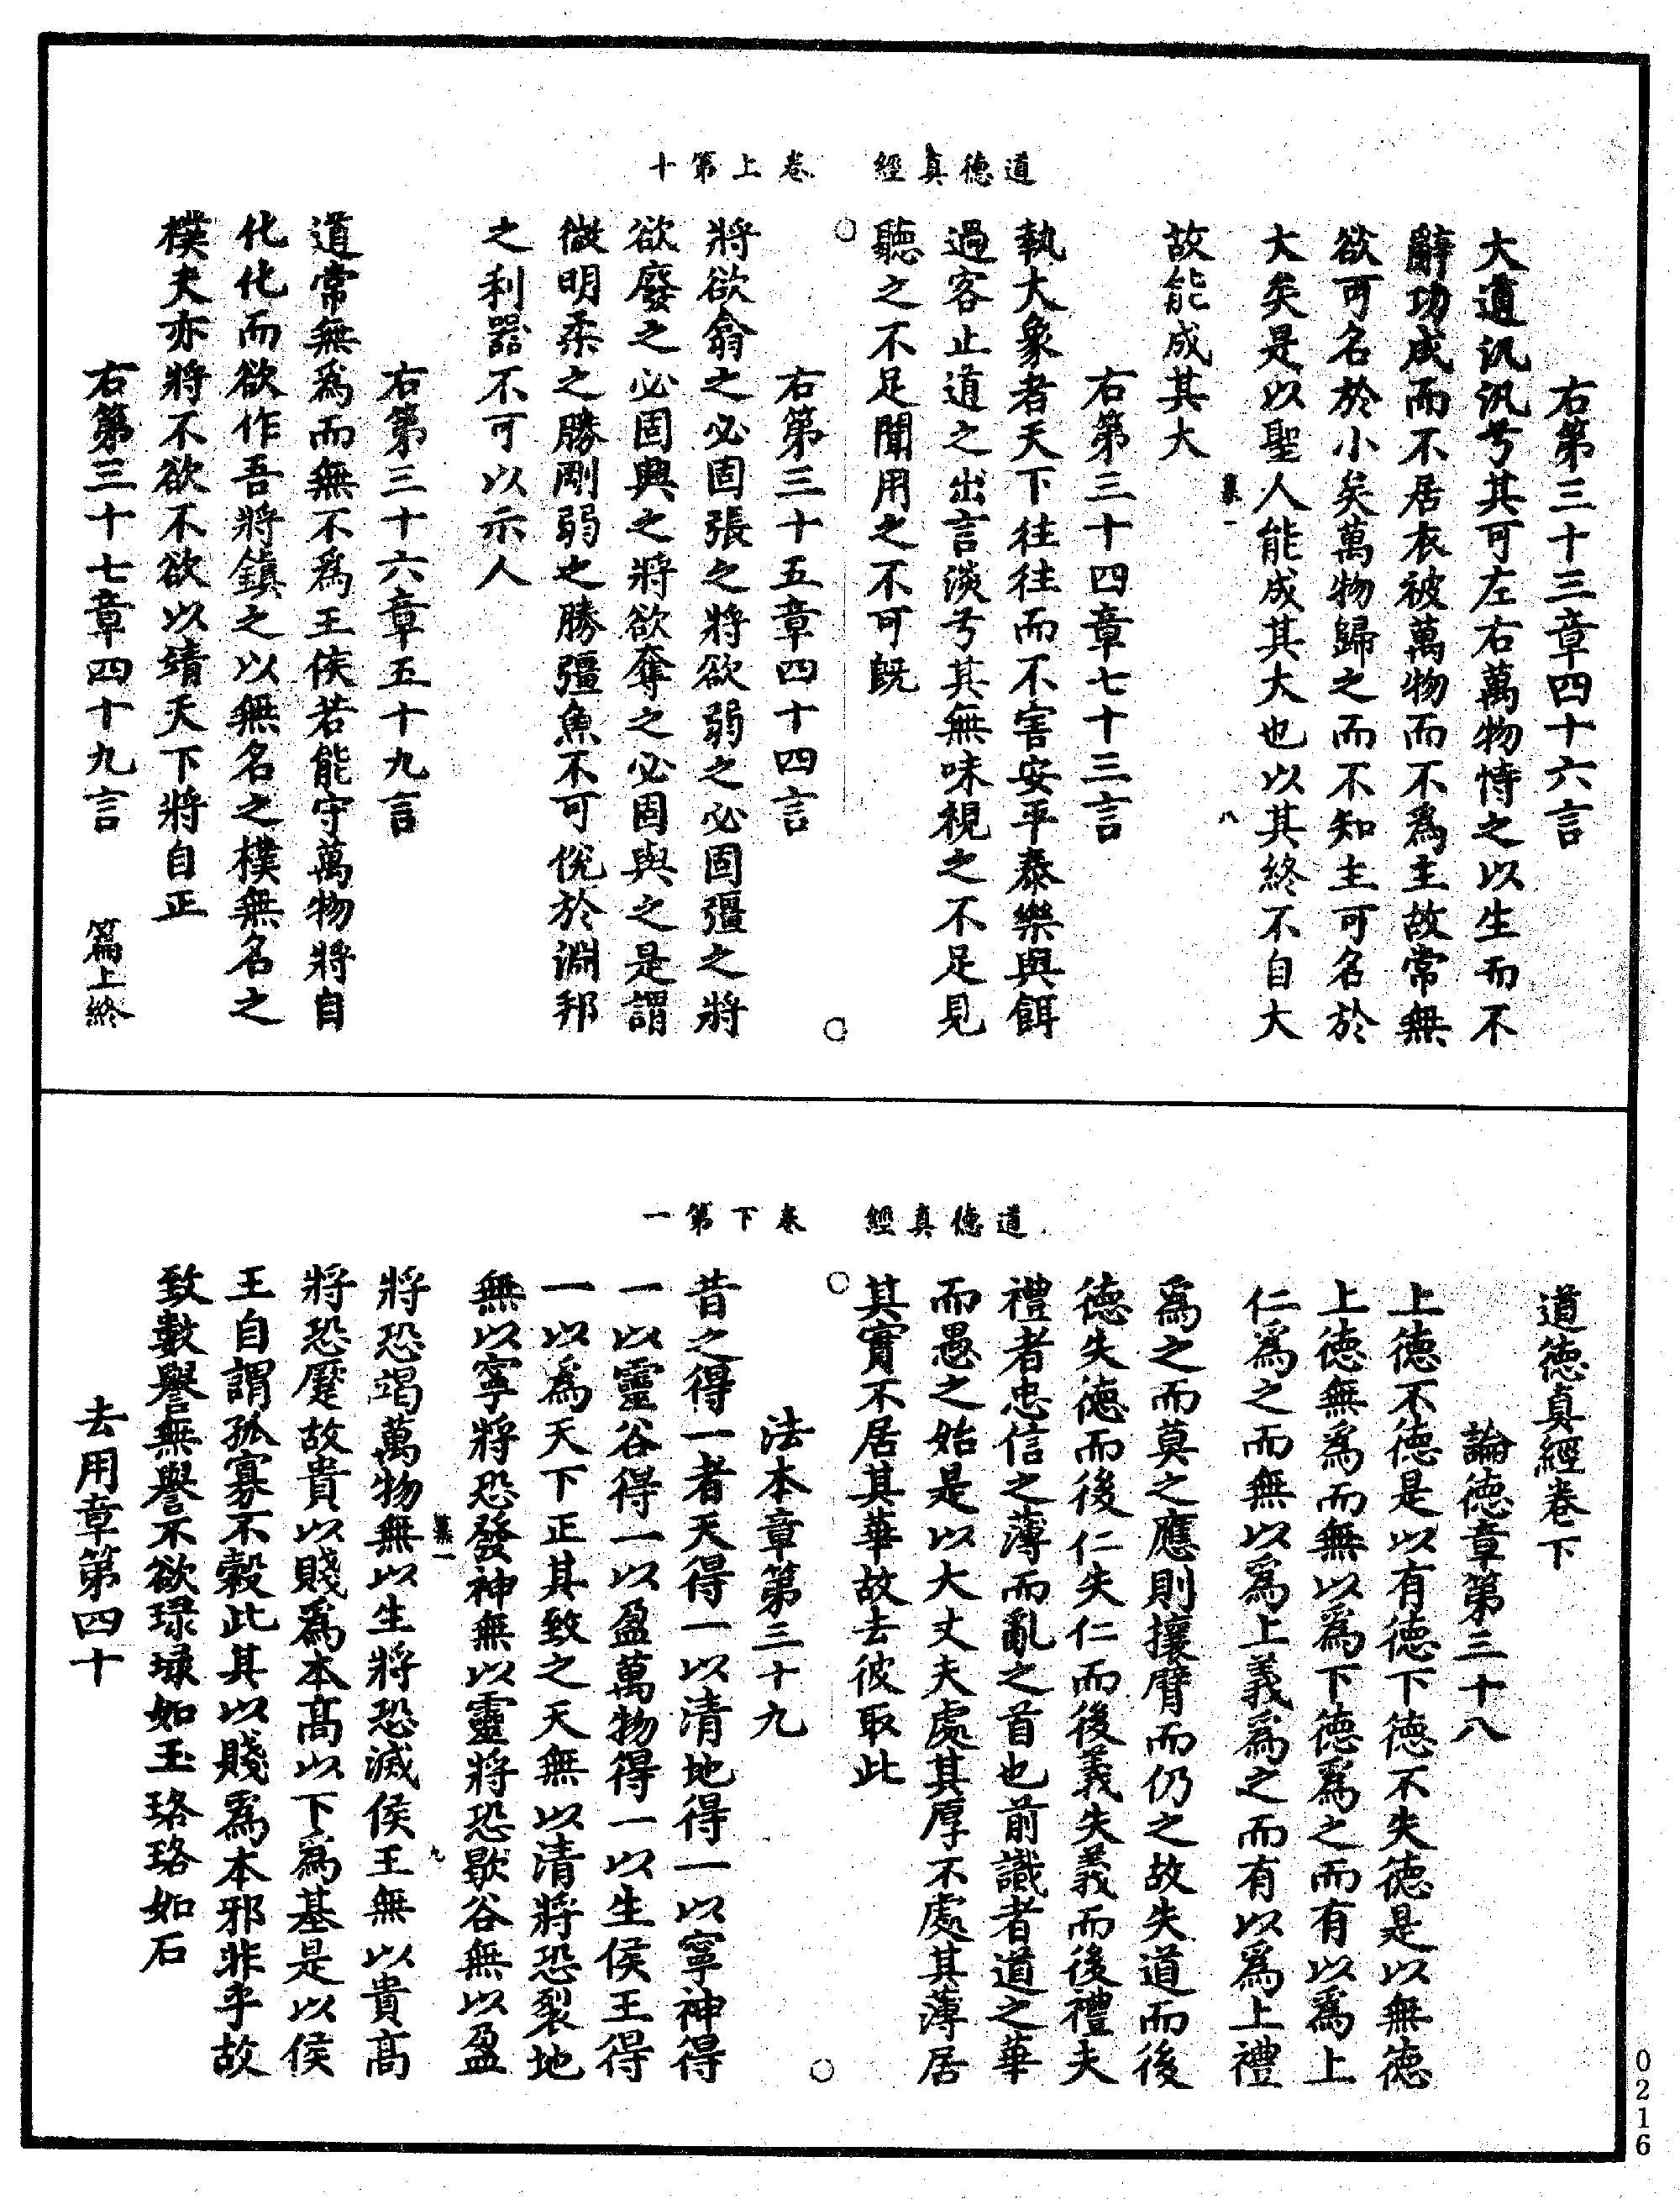 道德真經　卷上第十
右第三十三章四十六言
大道汎汎兮其可左右萬物恃之以生而不
辭功成而不居衣被萬物而不爲主故常無
欲可名於小矣萬物歸之而不知主可名於
大矣是以聖人能成其大也以其終不自大
八
故能成其大
右第三十四章七十三言
執大象者天下往往而不害安平泰樂與餌
過客止道之出言淡兮其無味視之不足見
聽之不足聞用之不可旣
右第三十五章四十四言
將欲翕之必固張之將欲弱之必固彊之將
欲廢之必固興之將欲奪之必固與之是謂
微明柔之勝剛弱之勝彊魚不可侻於淵邦
之利器不可以示人
右第三十六章五十九言
道常無爲而無不爲王侯若能守萬物將自
化化而欲作吾將鎮之以無名之樸無名之
樸夫亦將不欲不欲以靖天下將自正
右第三十七章四十九言　篇上終
道德真經　卷下第一
道德真經卷下
論德章第三十八
上德不德是以有德下德不失德是以無德
上德無爲而無以爲下德爲之而有以爲上
仁爲之而無以爲上義爲之而有以爲上禮
爲之而莫之應則攘臂而仍之故失道而後
德失德而後仁失仁而後義失義而後禮夫
禮者忠信之薄而亂之首也前識者道之華
而愚之始是以大丈夫處其厚不處其薄居
其實不居其華故去彼取此
法本章第三十九
昔之得一者天得一以清地得一以寧神得
一以靈谷得一以盈萬物得一以生侯王得
一以爲天下正其致之天無以清將恐裂地
無以寧將恐發神無以靈將恐歇谷無以盈
九
將恐竭萬物無以生將恐滅侯王無以貴高
將恐蹷故貴以賤爲本高以下爲基是以侯
王自謂孤寡不穀此其以賤爲本邪非乎故
致數譽無譽不欲琭琭如玉珞珞如石
去用章第四十
0216